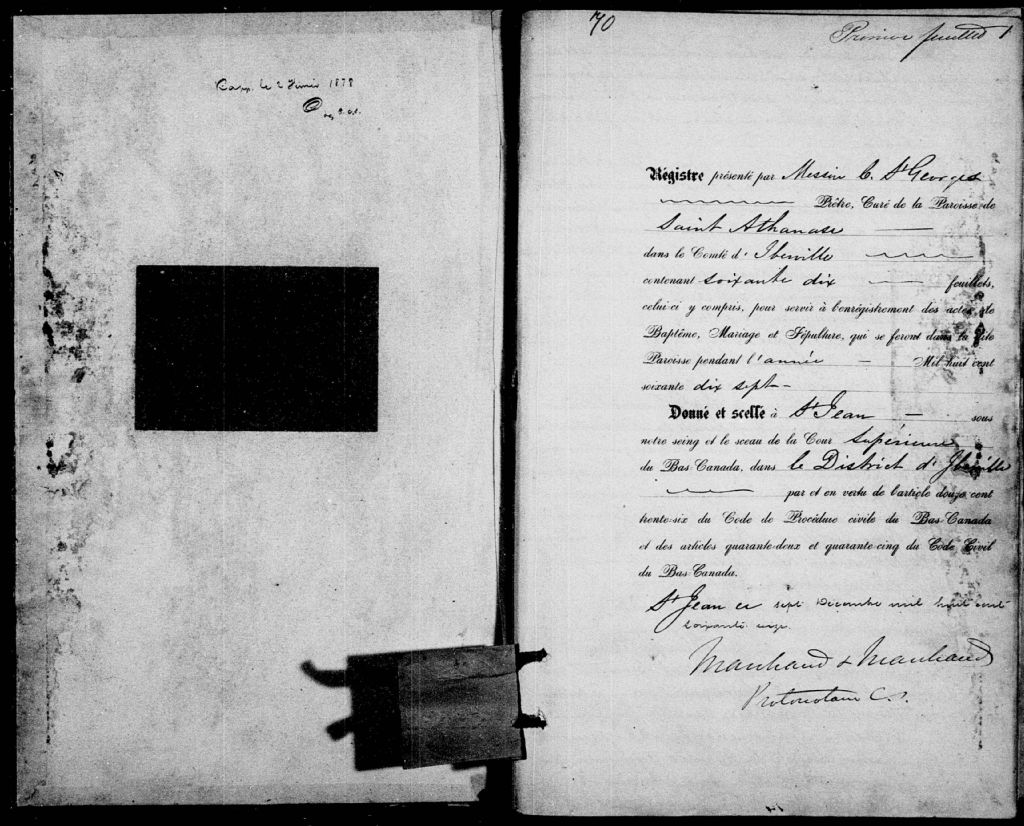 le 2 1878
70
Premier feuillet 1
Régistre présenté par Messire C. St Georges
Prêtre, Curé de la Paroisse de
Saint Athanase
dans le Comté d'Iberville
contenant soixante dix feuillets,
celui-ci y compris, pour servir à l'enrégistrement des actes de
Baptême, Mariage et Sépulture, qui se feront dans la dite
Paroisse pendant l'année Mil huit cent
soixante dix sept
Donné et scellé à St Jean sous
notre seing et le sceau de la Cour Supérieure
du Bas-Canada, dans le District d'Iberville
par et en vertu de l'article douze cent
trente-six du Code de Procédure civile du Bas-Canada
et des articles quarante-deux et quarante-cinq du Code Civil
du Bas-Canada.
St Jean ce sept Decembre mil huit cent
soixante
Marchand & Marchand
Protonotaire C.S.